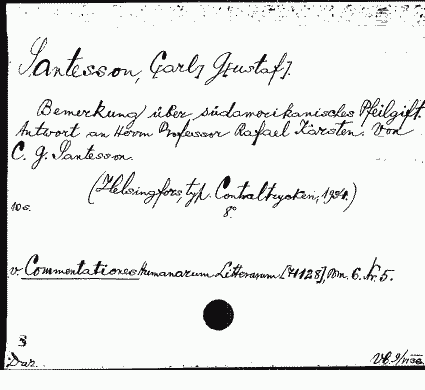 Santesson, Carl G[ustaf].
Bemerkung über südamerikanisches Pfeilgift.
Antwort an Herrn Professor Rafael Karsten. Von
C. G. Santesson.
(Helsingfors, typ. Centraltryckeri, 1931.)
10 s. 8°.
v. Commentationes Humanarum Litterarum [H128], Vm. 6. Nr. 5.
Dar.